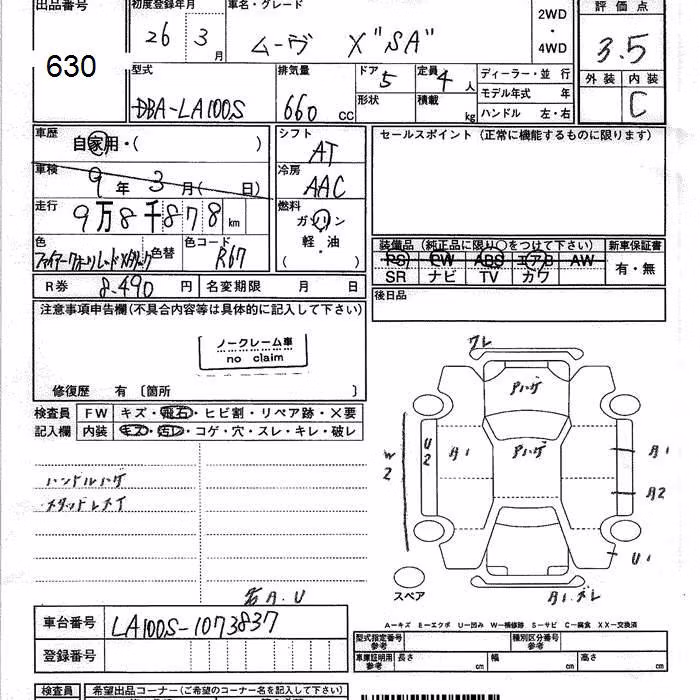 出品番号 初度登録年月 車名・グレード 評価点
630 26 3月 ムーヴ X"SA" 2WD・4WD 3.5
外装 内装
C
型式 排気量 ドア 5 定員 4人 ディーラー・並行
DBA-LA100S 660cc 形状 積載 kg モデル年式 年
ハンドル 左・右
車歴 自家用・( ) シフト AT セールスポイント(正常に機能するものに限ります)
車検 9年3月( 日) 冷房 AAC
走行 9万8千878km 燃料 ガソリン 軽・油
色 色替 色コード R67
装備品(純正品に限り○をつけて下さい) 新車保証書
PS PW ABS エアB AW 有・無
SR ナビ TV カワ
R券 8,490円 名変期限 月 日 後日品
注意事項申告欄(不具合内容等は具体的に記入して下さい)
ノークレーム車
no claim
修復歴 有〔箇所 〕
検査員 FW キズ・飛石・ヒビ割・リペア跡・X要
記入欄 内装 キズ・汚レ・コゲ・穴・スレ・キレ・破レ
ハンドルハゲ
スタッドレスタイ
若A.U
ワレ
Pハゲ
W2 U2 A1 Pハゲ A1
A2
U1
スペア A1.ズレ
A-キズ E-エクボ U-凹み W-補修跡 S-サビ C-腐食 XX-交換済
車台番号 LA100S-1073837
登録番号
型式指定番号 参考 種別区分番号 参考
車庫証明用 参考 長さ cm 幅 cm 高さ cm
検査員 希望出品コーナー(ご希望のコーナー名を記入して下さい)